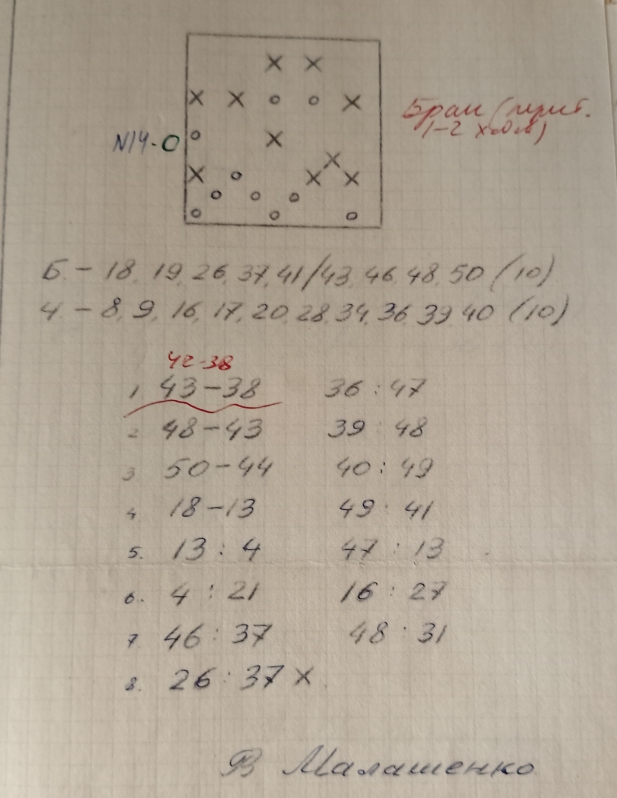 Брак (
1-2 ходом)
N14-O
Б. - 18, 19, 26, 37, 41/43, 46, 48, 50 (10)
Ч. - 8, 9, 16, 17, 20, 28, 34, 36, 39, 40 (10)
42-38
1 43-38 36:47
2 48-43 39:48
3 50-44 40:49
4 18-13 49:41
5. 13:4 47:13
6. 4:21 16:27
7 46:37 48:31
8. 26:37 X
В Малашенко